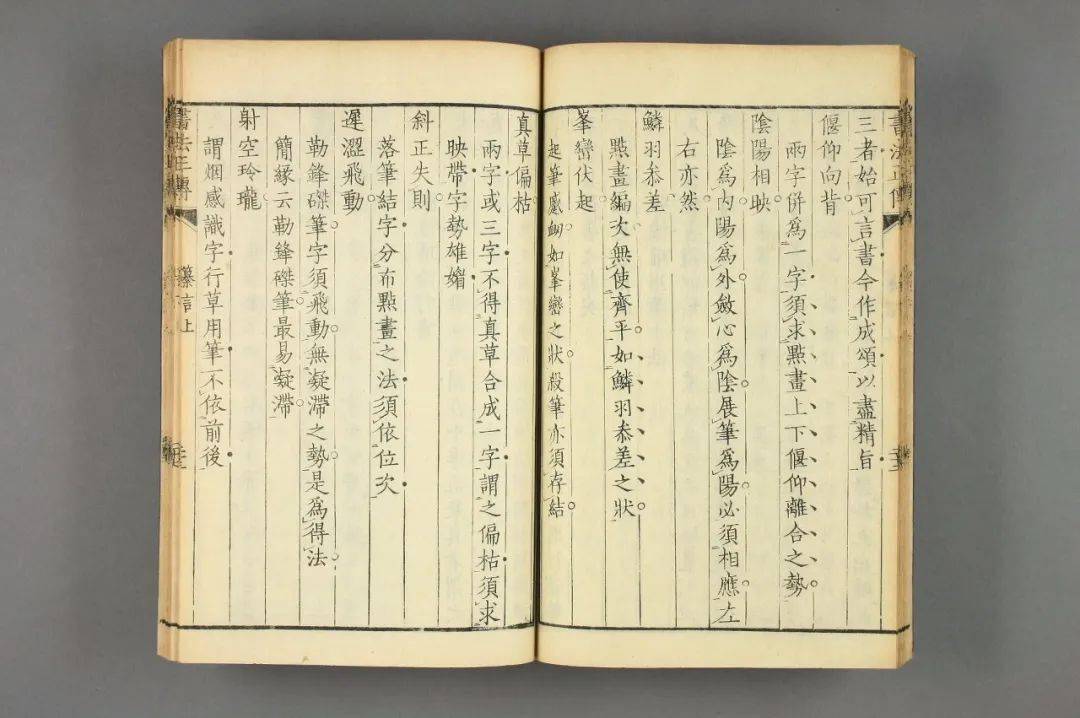 三者始可言書今作成頌以盡精旨
偃仰向背
兩字併為一字須求點畫上下偃仰離合之勢
陰陽相映
陰為內陽為外斂心為陰展筆為陽必須相應左
右亦然
鱗羽叅差
點畫編次無使齊平如鱗羽叅差之狀
峯巒伏起
起筆蹙衂如峯巒之狀殺筆亦須存結
真草偏枯
兩字或三字不得真草合成一字謂之偏枯須求
映帶字勢雄媚
斜正失則
落筆結字分布點畫之法須依位次
遲澀飛動
勒鋒磔筆字須飛動無凝滯之勢是為得法
簡緣云勒鋒磔筆最易凝滯
射空玲瓏
謂烟感識字行草用筆不依前後
書法正傳
纂言上